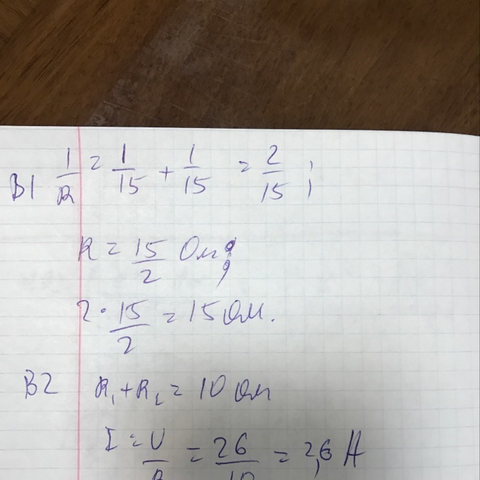 В1 1/R = 1/15 + 1/15 = 2/15 ;
R = 15/2 Ом;
2 · 15/2 = 15 Ом.
В2 R₁ + R₂ = 10 Ом
I = U/R = 26/10 = 2,6 А